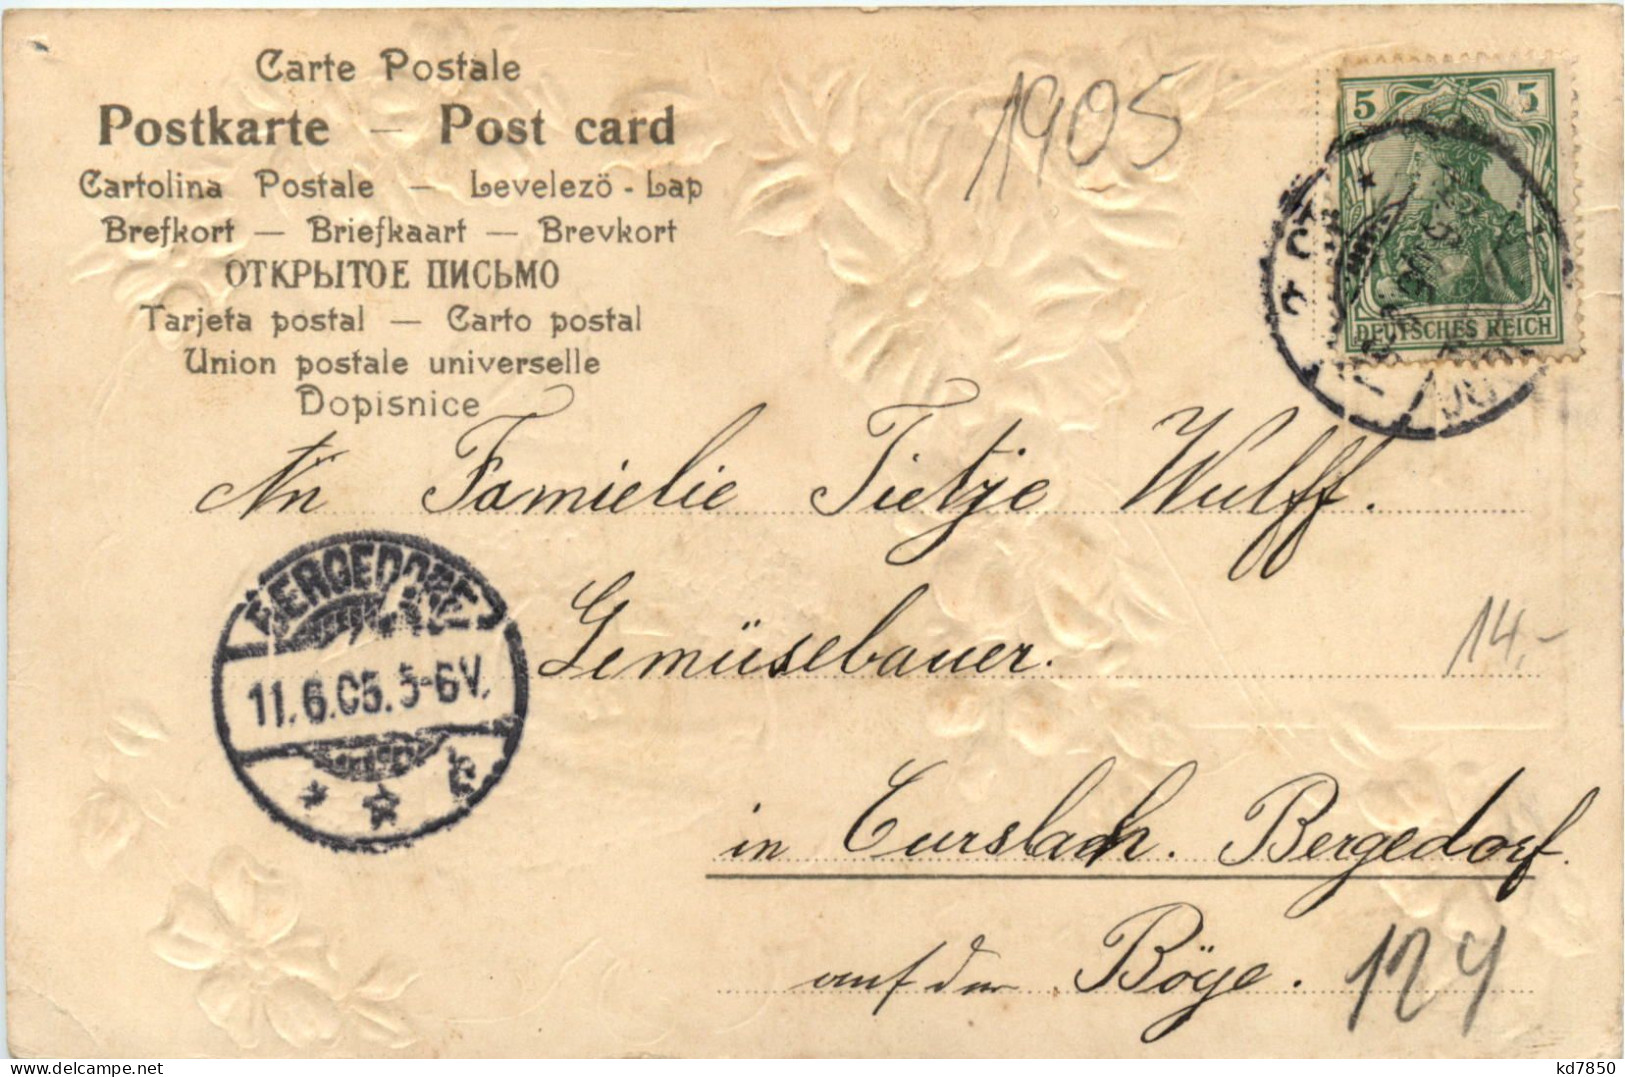 Carte Postale
Postkarte – Post card
Cartolina Postale – Levelezö-Lap
Brefkort – Briefkaart – Brevkort
ОТКРЫТОЕ ПИСЬМО
Tarjeta postal – Carto postal
Union postale universelle
Dopisnice
1905
5 5
DEUTSCHES REICH
An Familie Tietje Wulff.
BERGEDORF
11.6.05. 5-6V.
Gemüsebauer.
14,-
in Curslach. Bergedorf.
auf der Böge.
124
kd7850